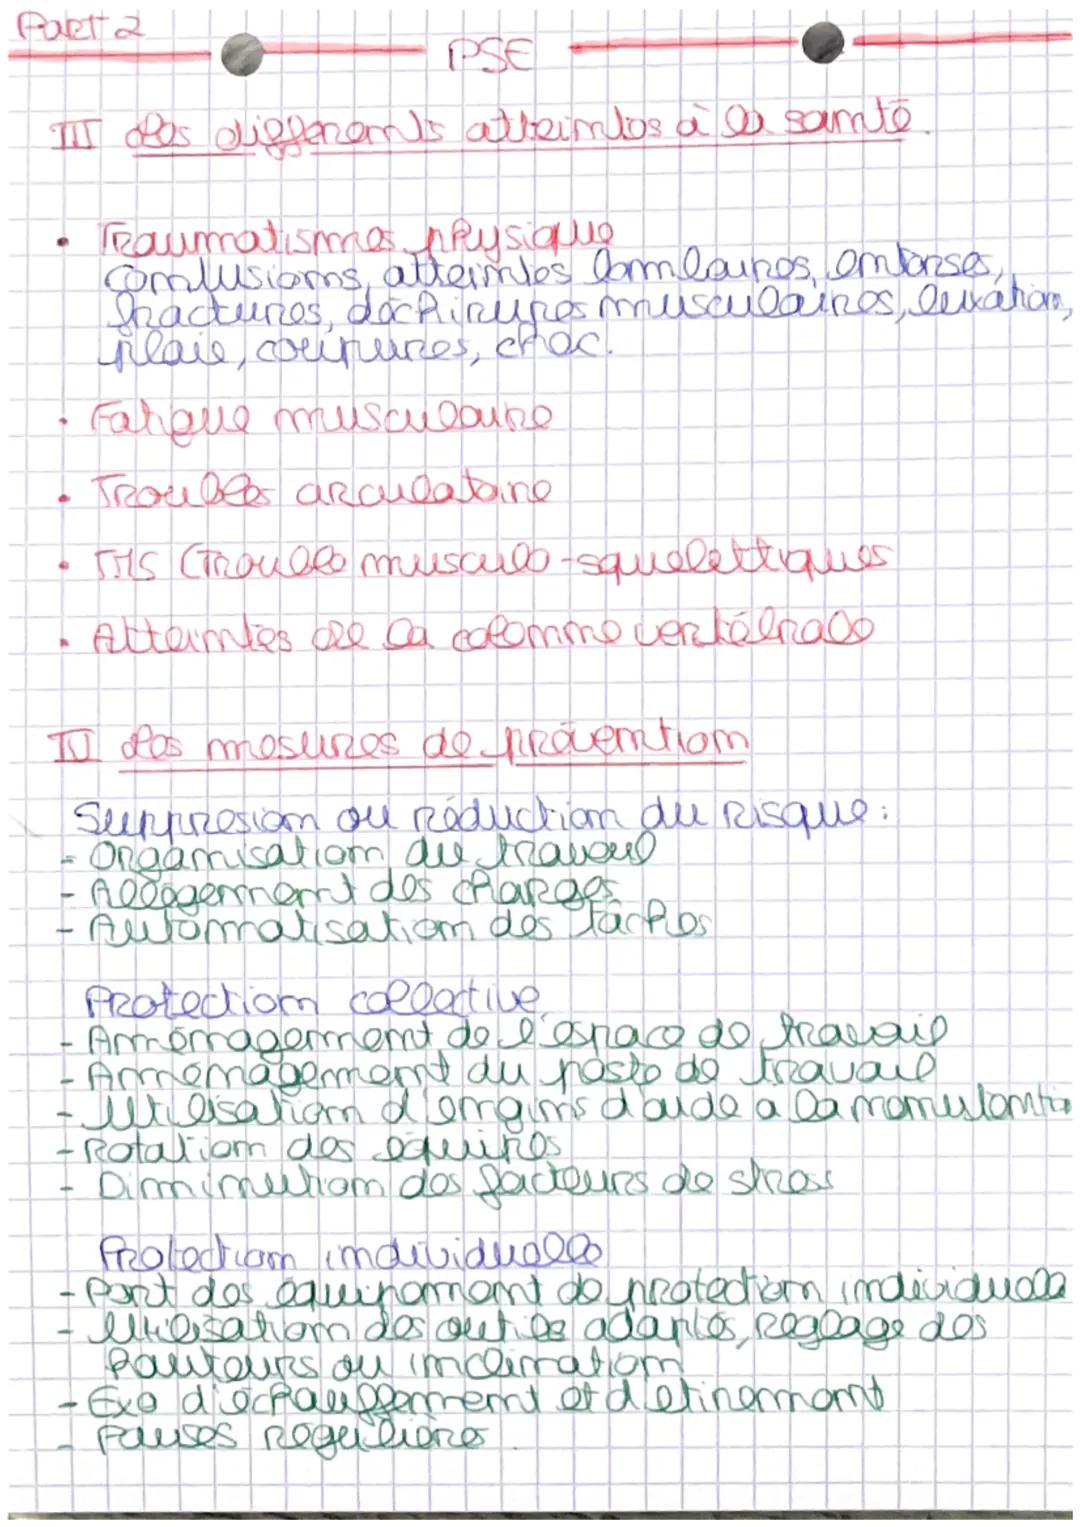 Part 2
PSE
III Les differents atteintes à la santé.
• Traumatismes physique
contusions, atteintes lombaires, entorses,
fractures, déchirures musculaires, luxation,
plaie, coupures, choc.
• Fatigue musculaire
• Troubles circulatoire
• TMS (Trouble musculo-squelettiques
• Atteintes de la colonne vertébrale
IV Les mesures de prévention
Suppresion ou réduction du risque :
- Organisation du travail
- Allègement des charges
- Automatisation des tâches
Protection collective
- Aménagement de l'espace de travail
- Aménagement du poste de travail
- Utilisation d'engins d'aide a la manutentio
- Rotation des équipes
- Diminution des facteurs de stress
Protection individuelle
- Port des équipement de protection individuelle
- Utilisation des outils adaptés, Réglage des
hauteurs ou inclination
- Exo d'échauffement et d'étirement
- Pauses régulières.